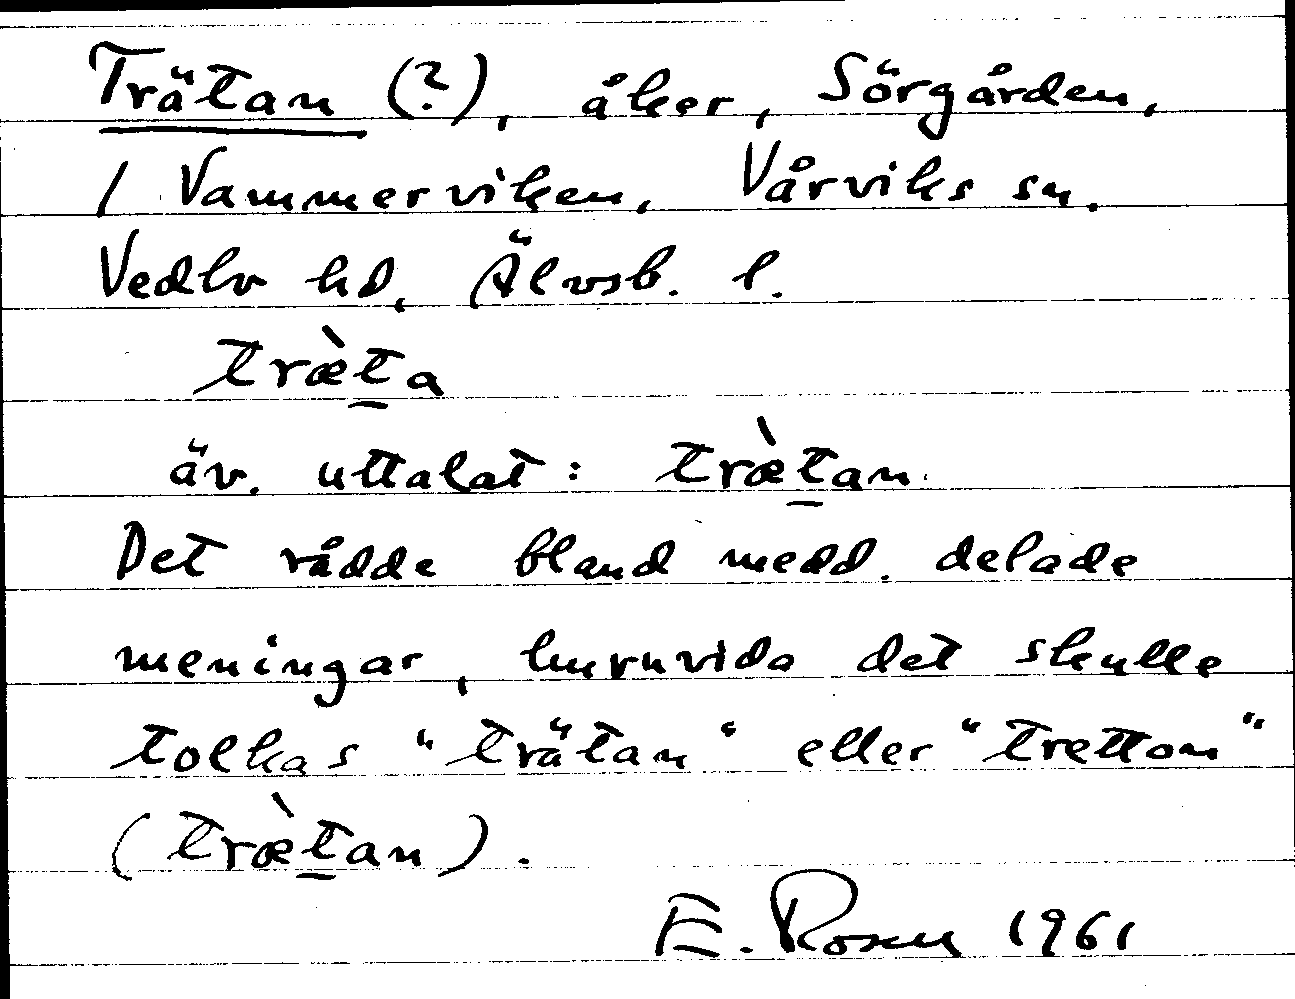 Trätan (?), åker, Sörgården,
/ Vammerviken, Vårviks sn.
Vedbo hd, Älvsb. l.
træ̀t̲a
äv. uttalat: træ̀t̲an
Det rådde bland medd. delade
meningar, huruvida det skulle
tolkas "trätan" eller "tretton"
(træ̀t̲an).
E. Rosen 1961